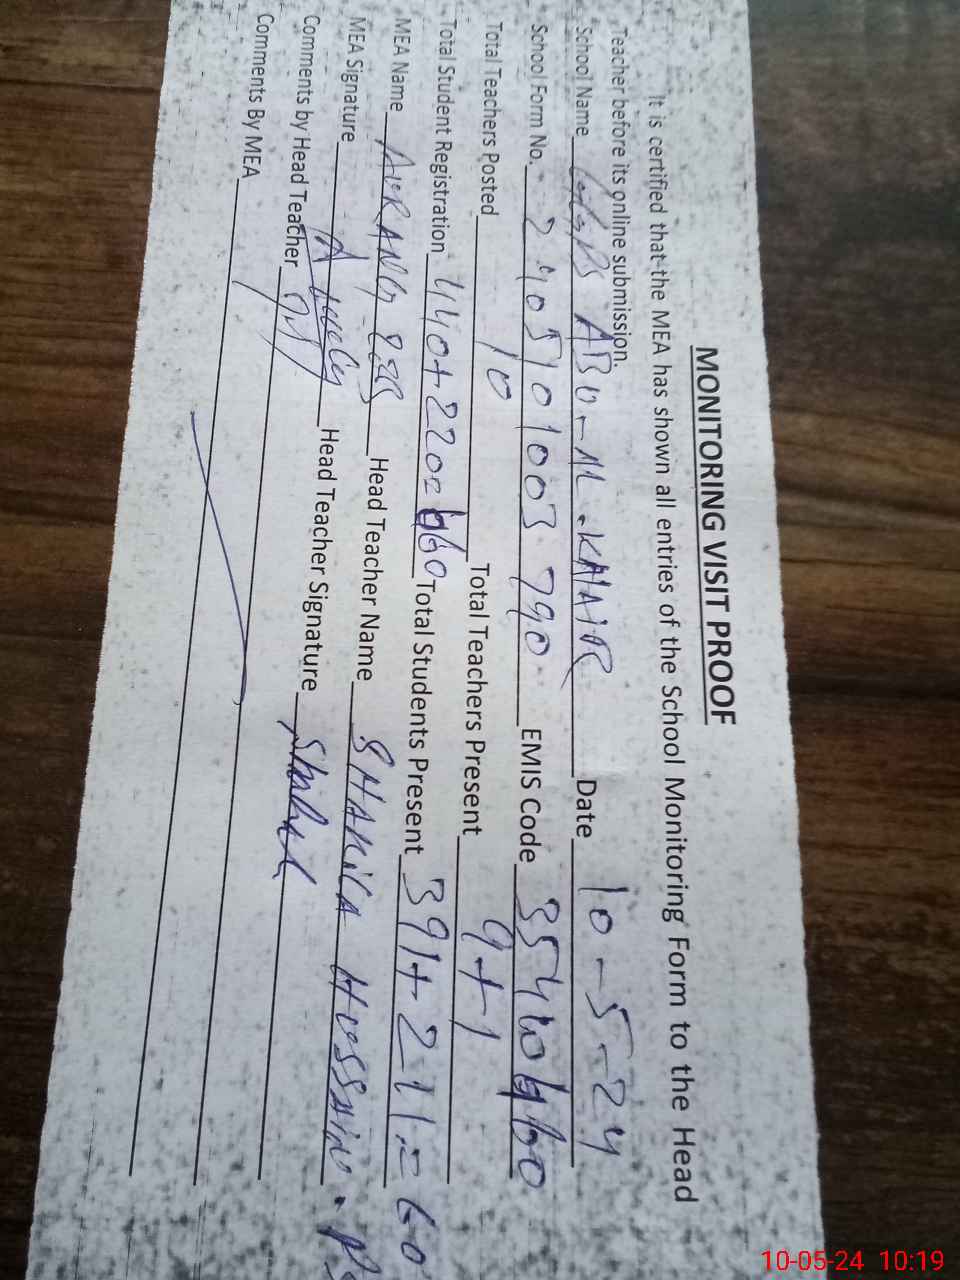 MONITORING VISIT PROOF
It is certified that the MEA has shown all entries of the School Monitoring Form to the Head
Teacher before its online submission.
School Name ABU-M.KHAIR Date 10-5-24
School Form No. 2405101003790 EMIS Code
Total Teachers Posted 10 Total Teachers Present 9+1
Total Student Registration 440+220=660 Total Students Present 391+211=60
MEA Name AURANG Head Teacher Name SHAKILA HUSSAIN.
MEA Signature Head Teacher Signature
Comments by Head Teacher
Comments By MEA
10-05-24 10:19